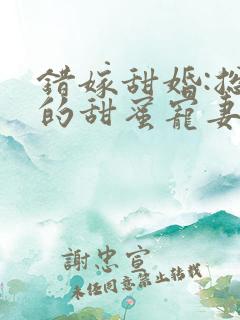 錯嫁甜婚:總
的甜蜜寵妻
謝忠宣
未經同意禁止轉載